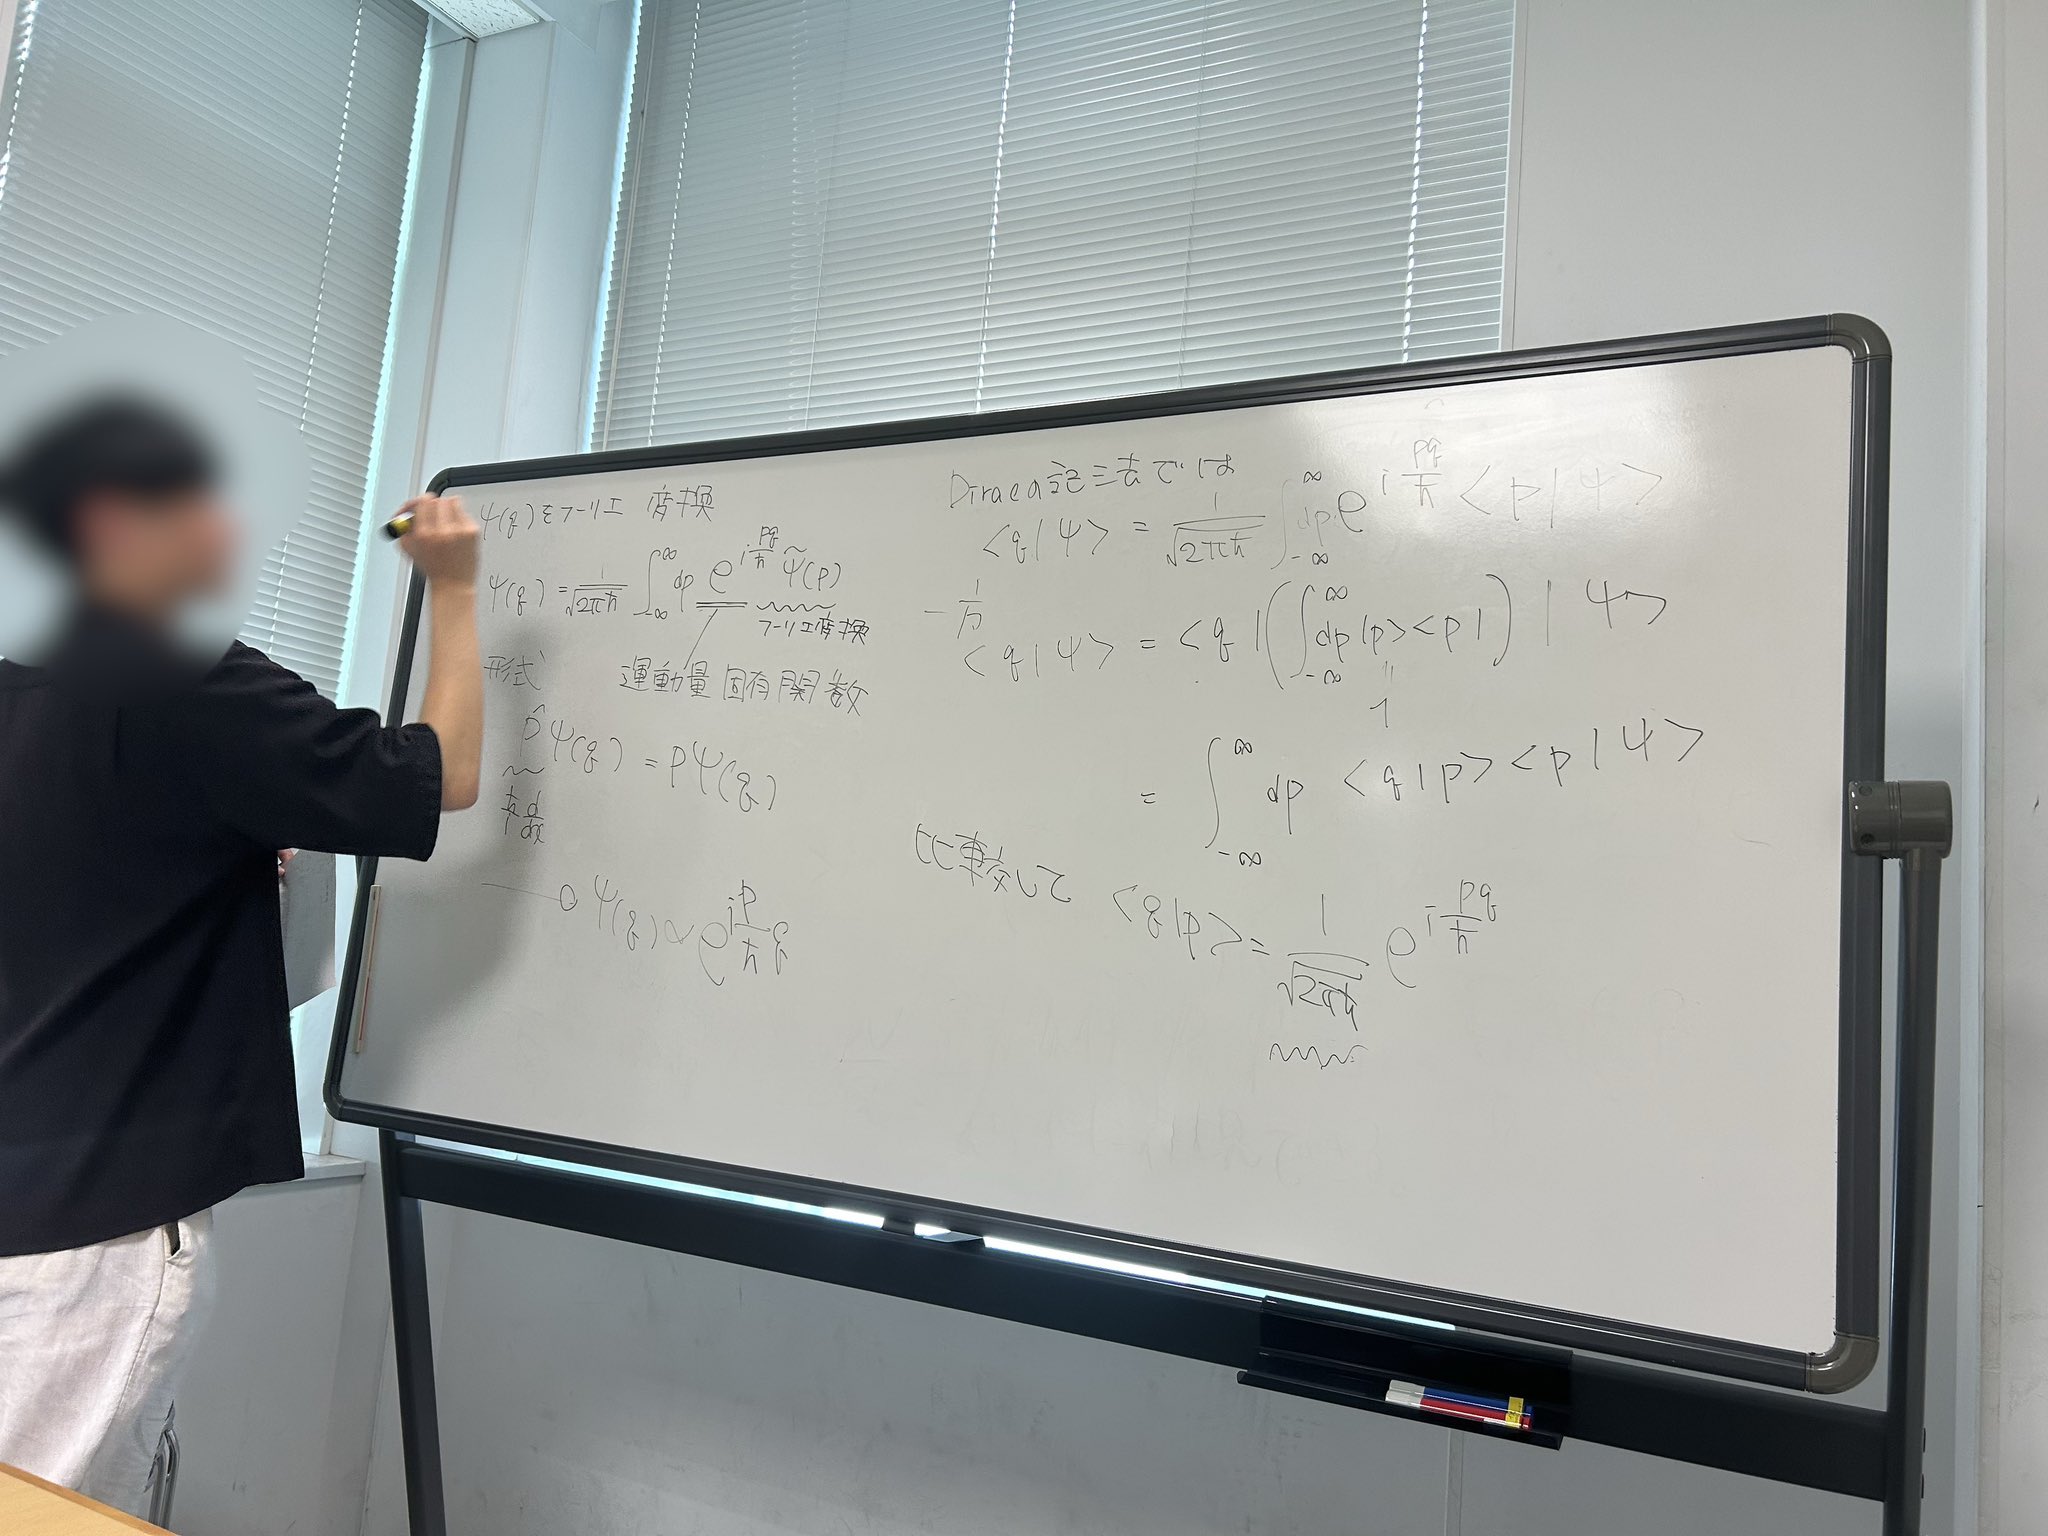 ψ(q)をフーリエ変換
ψ(q) = 1/√2πħ ∫_{-∞}^{∞} dp e^{i pq/ħ} ψ̃(p)
フーリエ変換
形式
運動量固有関数
p̂ψ(q) = pψ(q)
ψ(q) ∝ e^{i p/ħ q}
Diracの記法では
<q|ψ> = 1/√2πħ ∫_{-∞}^{∞} dp e^{i pq/ħ} <p|ψ>
<q|ψ> = <q|(∫_{-∞}^{∞} dp|p><p|)|ψ>
= 1
= ∫_{-∞}^{∞} dp <q|p><p|ψ>
比較して <q|p> = 1/√2πħ e^{i pq/ħ}